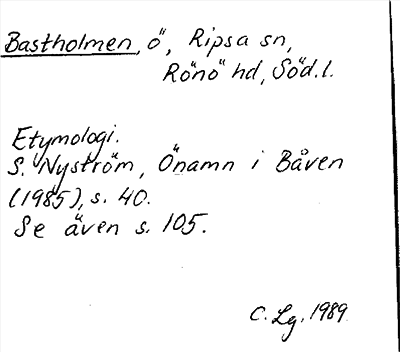 Bastholmen, ö, Ripsa sn,
Rönö hd, Söd.l.
Etymologi.
S. Nyström, Önamn i Båven
(1985), s. 40.
Se även s. 105.
C. Lg. 1989